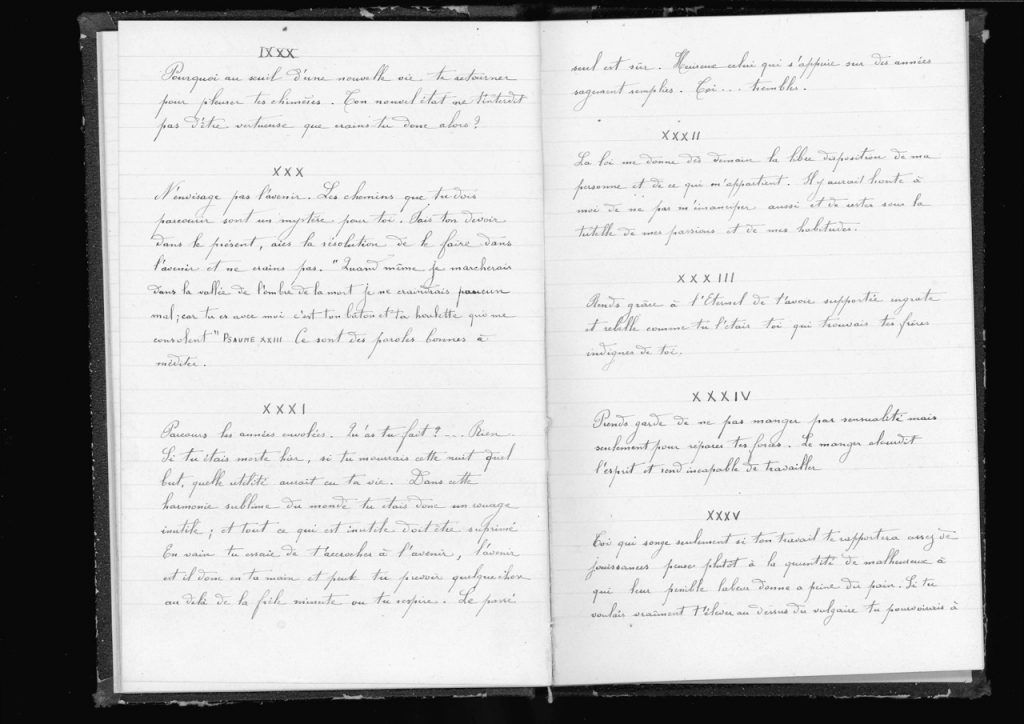 IXXX
Pourquoi au seuil d'une nouvelle vie te retourner
pour pleurer tes chimères. Ton nouvel état ne t'interdit
pas d'être vertueuse que crains tu donc alors?
XXX
N'envisage pas l'avenir. Les chemins que tu dois
parcourir sont un mystère pour toi. Fais ton devoir
dans le présent, aies la résolution de le faire dans
l'avenir et ne crains pas. "Quand même je marcherais
dans la vallée de l'ombre de la mort je ne craindrais aucun
mal; car tu es avec moi c'est ton bâton et ta houlette qui me
consolent" PSAUME XXIII Ce sont des paroles bonnes à
méditer.
XXXI
Parcours les années envolées. Qu'as tu fait? ... Rien
Si tu étais morte hier, si tu mourrais cette nuit quel
but, quelle utilité aurait eu ta vie. Dans cette
harmonie sublime du monde tu étais donc un rouage
inutile; et tout ce qui est inutile doit être suprimé
En vain tu essaie de t'accrocher à l'avenir, l'avenir
est il donc en ta main et peux tu prevoir quelque chose
au delà de la frêle minute ou tu respire. Le passé
seul est sûr. Heureux celui qui s'appuie sur des années
sagement remplies. Toi... trembles.
XXXII
La loi me donne dès demain la libre disposition de ma
personne et de ce qui m'appartient. Il y aurait honte à
moi de ne pas m'émanciper aussi et de rester sous la
tutelle de mes passions et de mes habitudes.
XXXIII
Rends grâce à l'Eternel de t'avoir supportée ingrate
et rebelle comme tu l'étais toi qui trouvais tes frères
indignes de toi.
XXXIV
Prends garde de ne pas manger par sensualité mais
seulement pour reparer tes forces. Le manger alourdit
l'esprit et rend incapable de travailler
XXXV
Toi qui songe seulement si ton travail te rapportera assez de
jouissances pense plutôt à la quantité de malheureux à
qui leur penible labeur donne a peine du pain. Si tu
voulais vraiment t'élever au dessus du vulgaire tu pourvoirais à